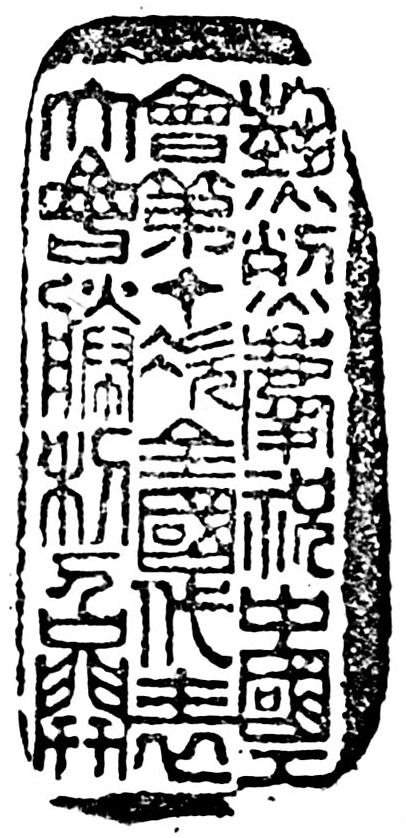 熱烈慶祝中國工
會第十次全國代表
大會勝利召開